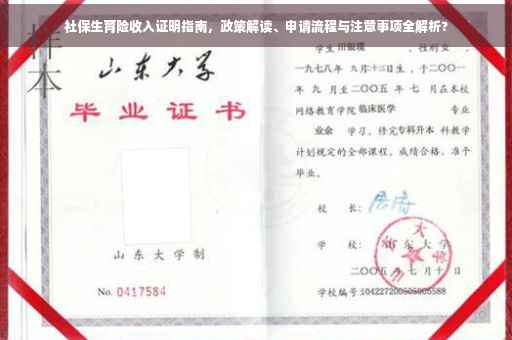 社保生育险收入证明指南，政策解读、申请流程与注意事项全解析?
样本
山东大学
毕业证书
山东大学制
No. 0417584
学生
性别女，
一九七八年 九月十三日生，于二〇〇一
年 九 月至二〇〇五 年 七 月在本校
网络教育学院 临床医学 专业
业余 学习，修完专科升本 科教学
计划规定的全部课程，成绩合格，准予
毕业。
校 长：
学 校： 山东大学
二〇〇五 年 七 月 十 日
学校编号：